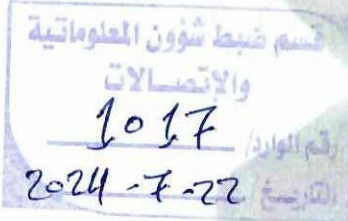 قسم ضبط شؤون المعلوماتية
والإتصالات
رقم الوارد/ 1017
التاريخ 2024-7-22